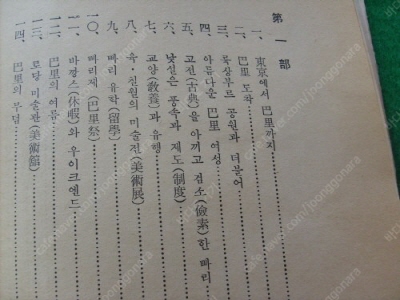 第一部
一、東京에서 巴里까지
二、巴里 도착
三、룩상부르 공원과 더불어
四、아름다운 巴里 여성
五、고전(古典)을 아끼고 검소(儉素)한 빠리
六、낯설은 풍속과 제도(制度)
七、교양(敎養)과 유행
八、육·친원의 미술전(美術展)
九、빠리 유학(留學)
一〇、빠리제(巴里祭)
一一、바깡스(休暇)와 우이크엔드
一二、巴里의 여름
一三、로당 미술관(美術館)
一四、巴里의 무덤